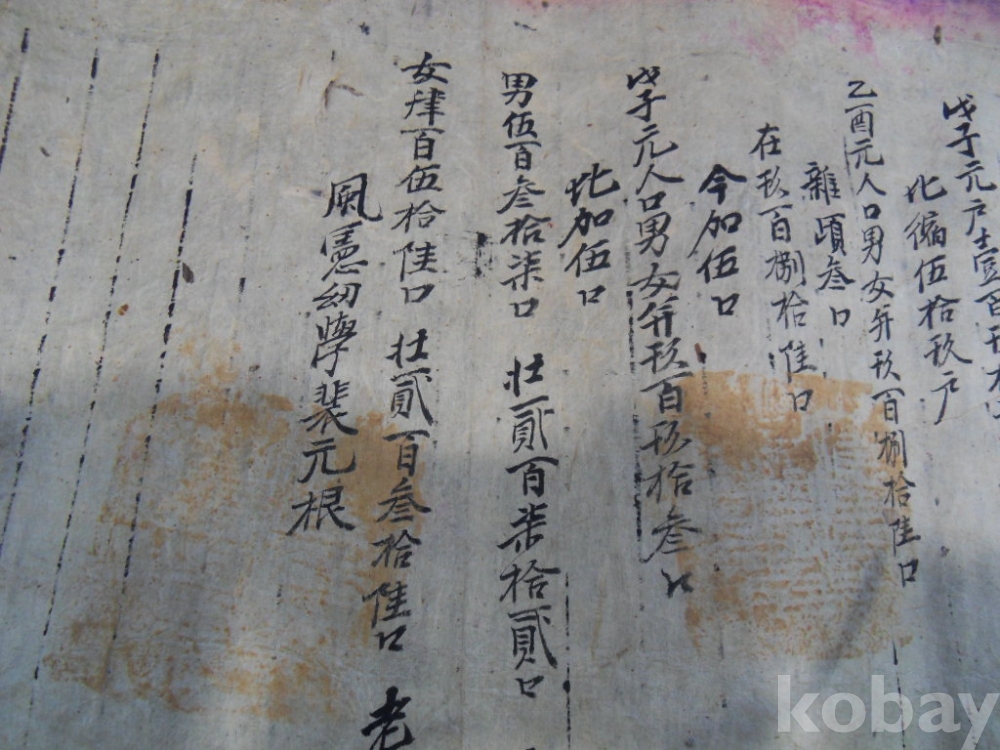 戊子元户壹百
比編伍拾玖户
乙酉元人口男女并玖百捌拾陸口
雜頉叁口
在玖百捌拾陸口
今加伍口
戊子元人口男女并玖百玖拾叁口
比加伍口
男伍百叁拾柒口 壮貳百柒拾貳口
女肆百伍拾陸口 壮貳百叁拾陸口 老
風憲幼學裴元根
kobay